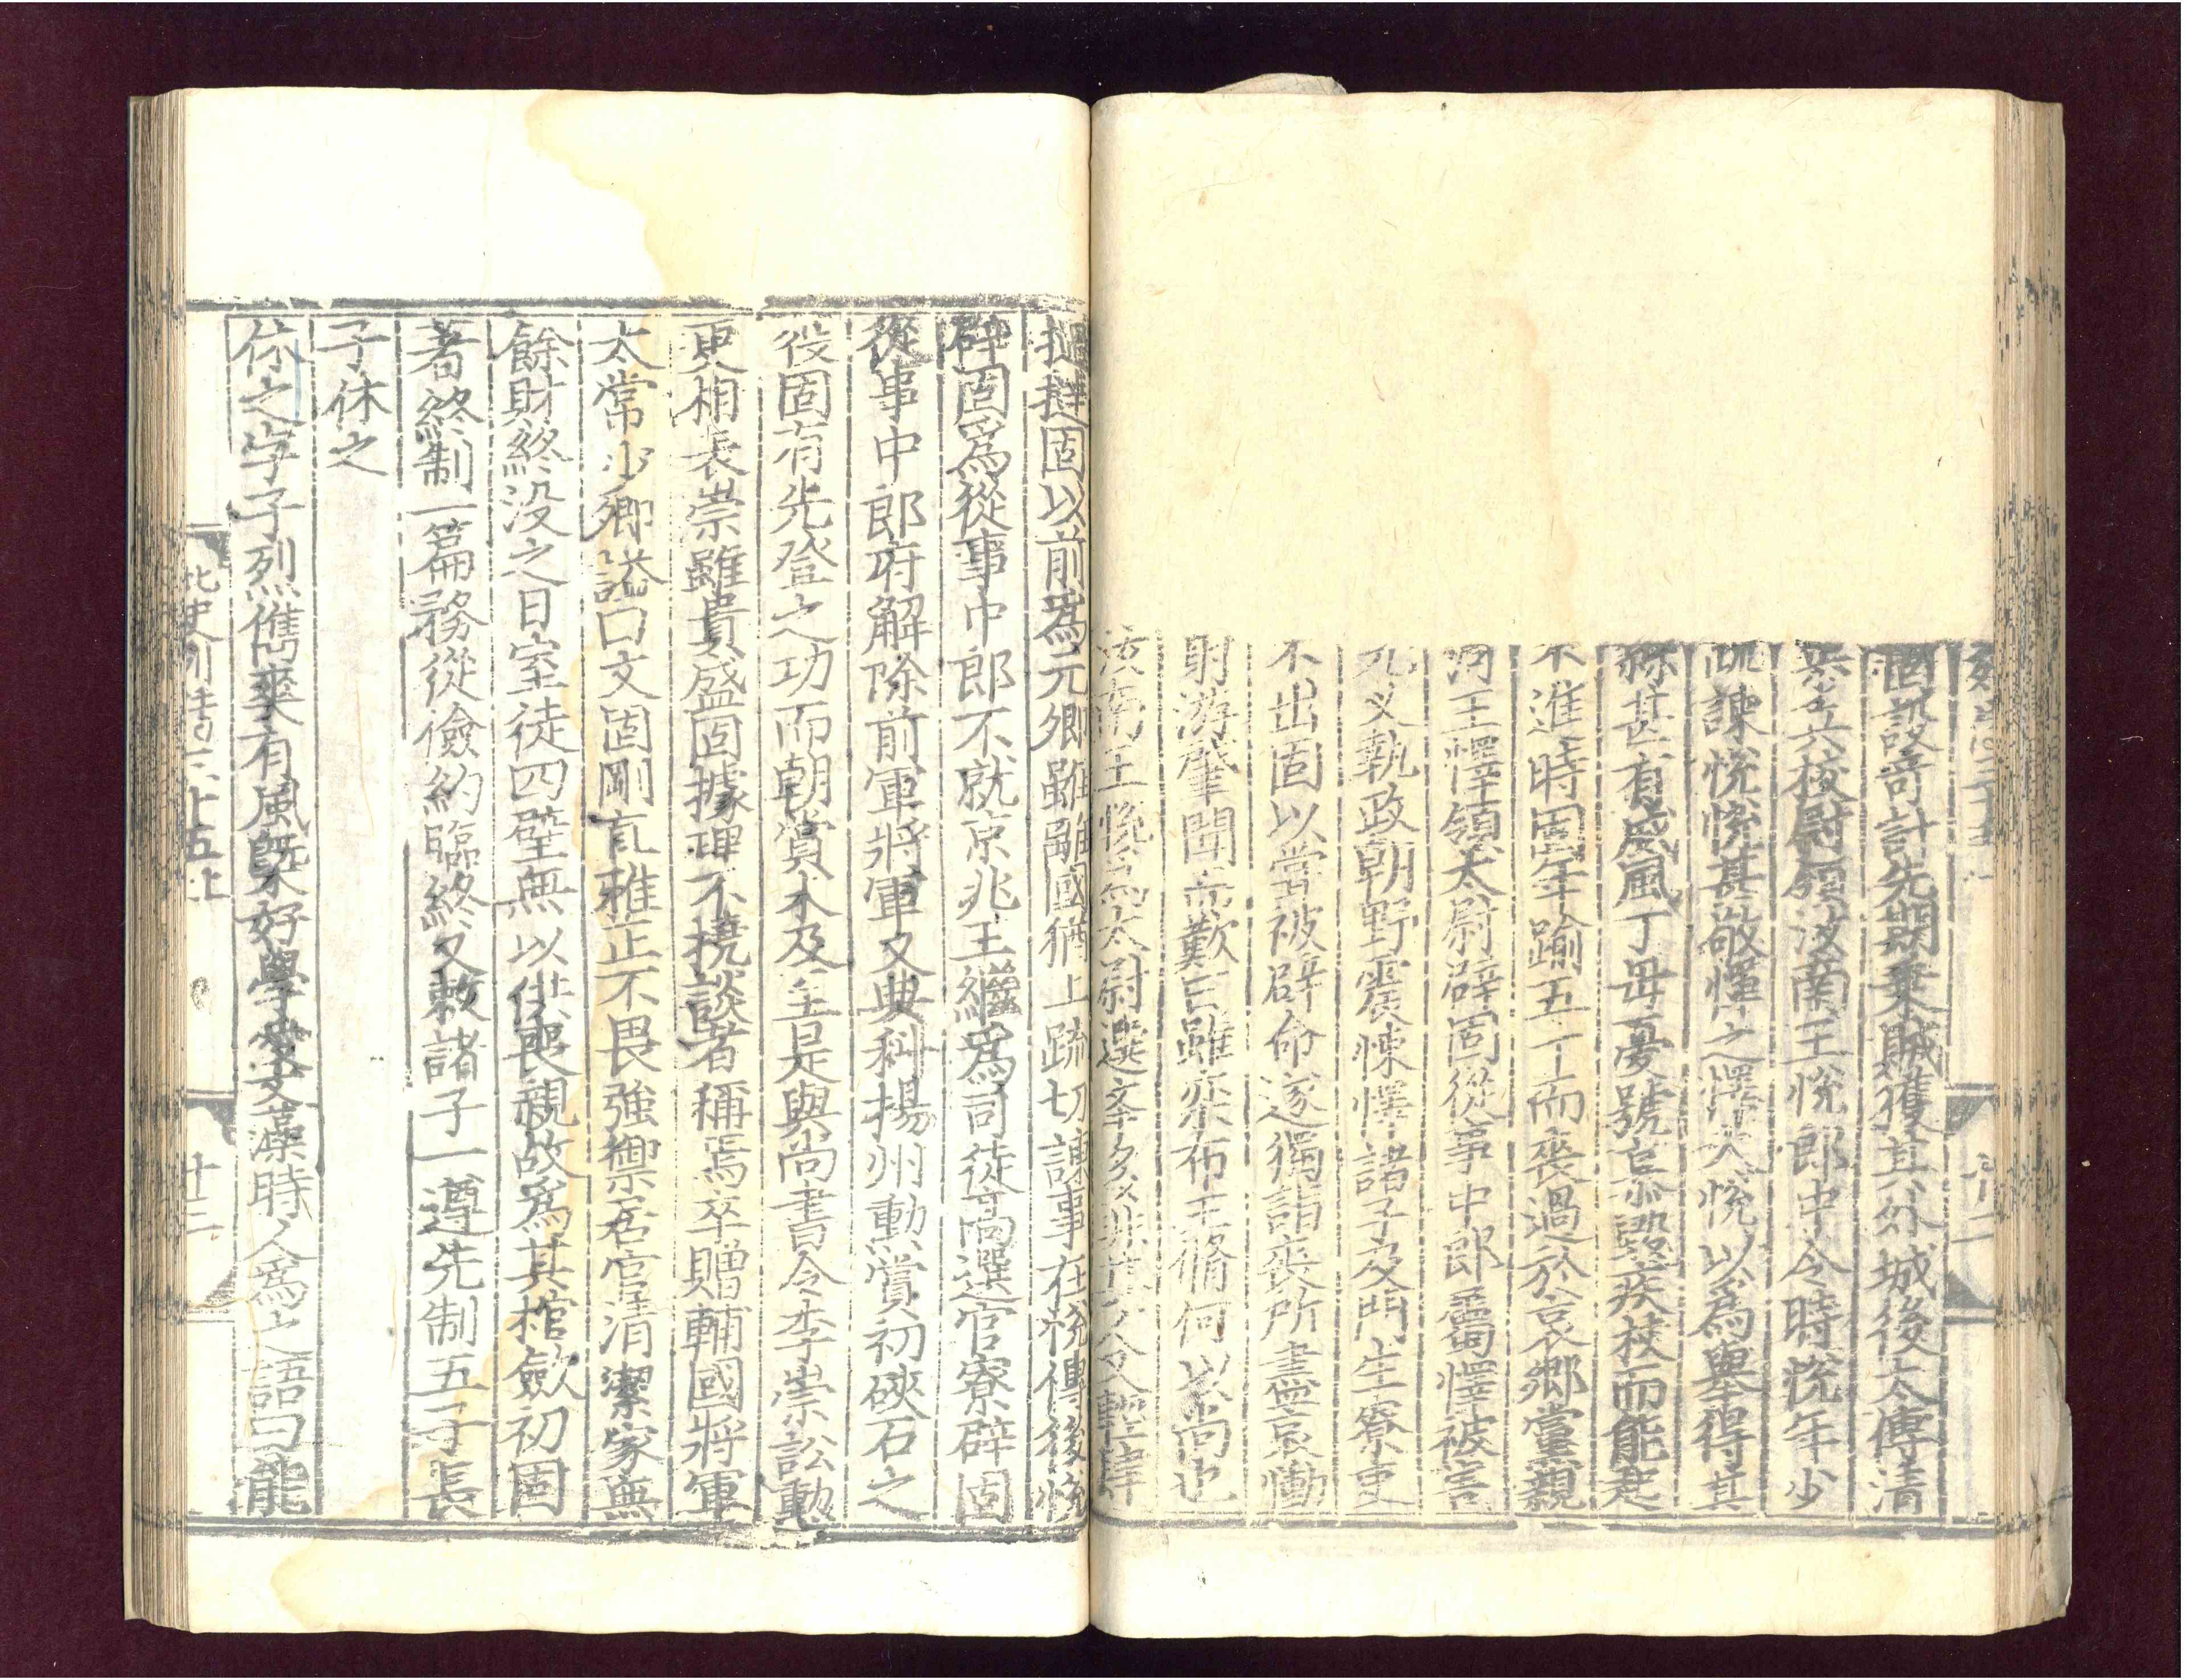 固設奇計先期乗賊獲其外城後太傅清
兵步六校尉領汝南王悅郎中令時悅年少
疏諫悅悅甚敬憚之懌大悅以爲舉得其
稱甚有威風丁母憂號哀毀疾杖而能起
不進時固年踰五十而喪過於哀鄉黨親
河王懌領太尉辟固從事中郎屬懌被害
元义執政朝野震悚懌諸子及門生寮吏
不出固以嘗被辟命遂獨詣喪所盡哀慟
射游肇聞而歎曰雖欒布王脩何以尚也
汝南王悅爲太尉選舉多非其人又輕肆
撾撻固以前爲元卿雖離國猶上疏切諫事在悅傳後悅
辟固爲從事中郎不就京兆王繼爲司徒高選官寮辟固
從事中郎府解除前軍將軍又典科揚州勳賞初硤石之
役固有先登之功而朝賞未及至是與尚書令李崇訟勳
更相表崇雖貴盛固據理不撓談者稱焉卒贈輔國將軍
太常少卿謚曰文固剛直雅正不畏強禦居官清潔家無
餘財終没之日室徒四壁無以供喪親故爲其棺斂初固
著終制一篇務從儉約臨終又敕諸子一遵先制五子長
子休之
休之字子烈儁爽有風槩好學愛文藻時人爲之語曰能
北史列傳三十五
十三